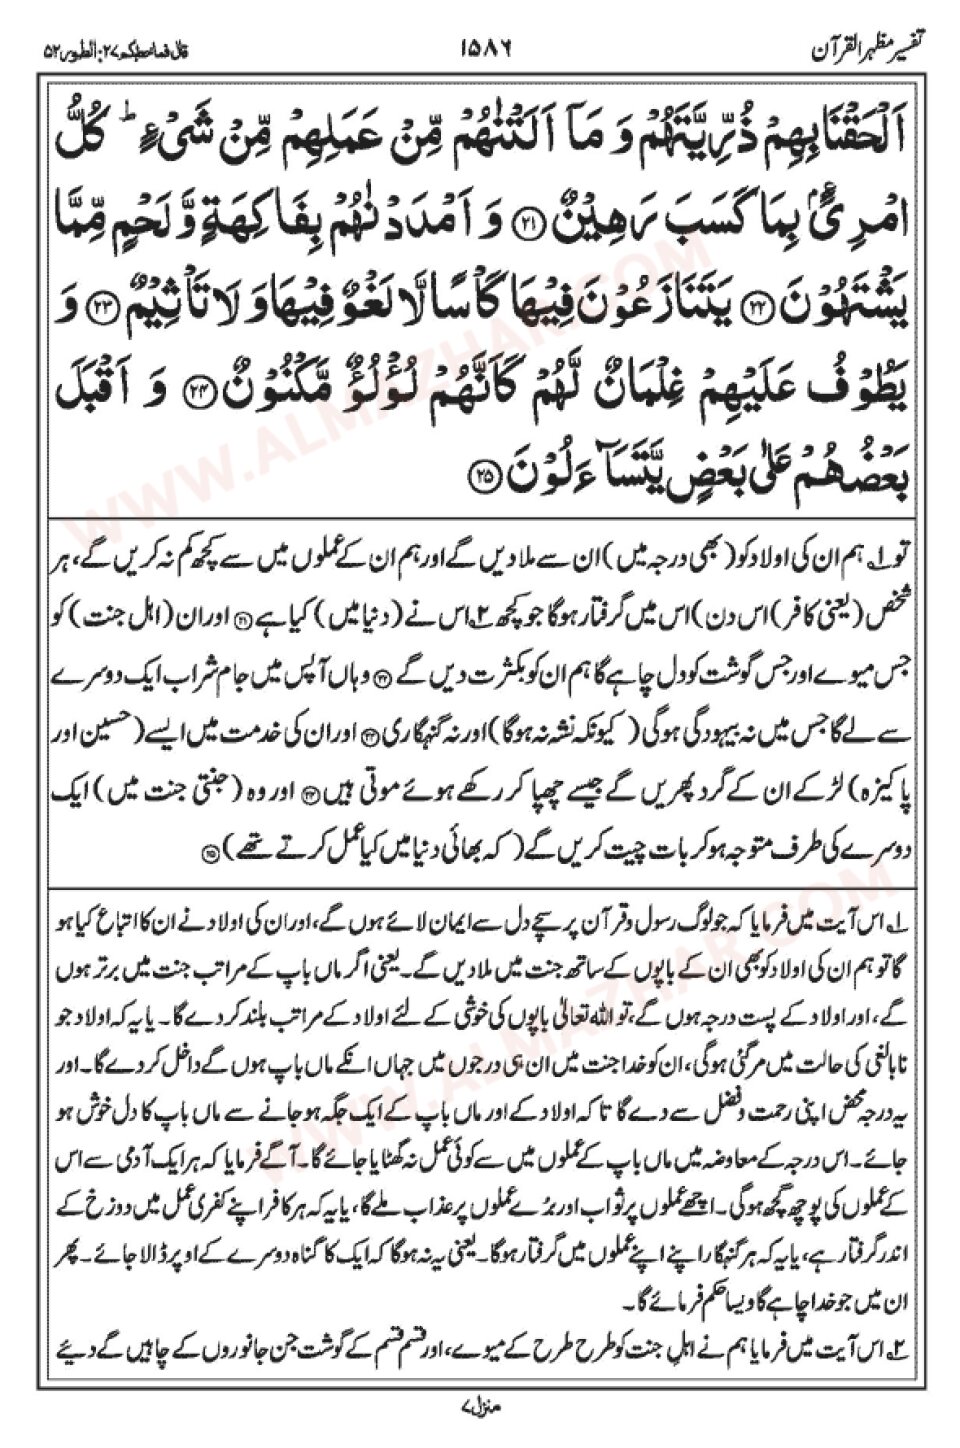 تفسیر مظہر القرآن
۱۵۸۶
قال فما خطبکم ۲۷: الطور ۵۲
اَلْحَقْنَا بِهِمْ ذُرِّيَّتَهُمْ وَ مَاۤ اَلَتْنٰهُمْ مِّنْ عَمَلِهِمْ مِّنْ شَیْءٍ ؕ کُلُّ
امْرِیًٔۢ بِمَا کَسَبَ رَهِيْنٌ ﴿۲۱﴾ وَ اَمْدَدْنٰهُمْ بِفَاكِهَةٍ وَّ لَحْمٍ مِّمَّا
يَشْتَهُوْنَ ﴿۲۲﴾ يَتَنَازَعُوْنَ فِيْهَا كَاْسًا لَّا لَغْوٌ فِيْهَا وَ لَا تَاْثِيْمٌ ﴿۲۳﴾ وَ
يَطُوْفُ عَلَيْهِمْ غِلْمَانٌ لَّهُمْ كَاَنَّهُمْ لُؤْلُؤٌ مَّكْنُوْنٌ ﴿۲۴﴾ وَ اَقْبَلَ
بَعْضُهُمْ عَلٰى بَعْضٍ يَّتَسَآءَلُوْنَ ﴿۲۵﴾
تو ۱؎ ہم ان کی اولاد کو (بھی درجہ میں) ان سے ملا دیں گے اور ہم ان کے عملوں میں سے کچھ کم نہ کریں گے، ہر
شخص (یعنی کافر) اس دن) اس میں گرفتار ہوگا جو کچھ ۲؎ اس نے (دنیا میں) کیا ہے ﴿۲۱﴾ اور ان (اہل جنت) کو
جس میوے اور جس گوشت کو دل چاہے گا ہم ان کو بکثرت دیں گے ﴿۲۲﴾ وہاں آپس میں جام شراب ایک دوسرے
سے لے گا جس میں نہ بیہودگی ہوگی ( کیونکہ نشہ نہ ہوگا) اور نہ گنہگاری ﴿۲۳﴾ اور ان کی خدمت میں ایسے (حسین اور
پاکیزہ) لڑکے ان کے گرد پھریں گے جیسے چھپا کر رکھے ہوئے موتی ہیں ﴿۲۴﴾ اور وہ (جنتی جنت میں) ایک
دوسرے کی طرف متوجہ ہو کر بات چیت کریں گے ( کہ بھائی دنیا میں کیا عمل کرتے تھے) ﴿۲۵﴾
۱؎ اس آیت میں فرمایا کہ جو لوگ رسول و قرآن پر سچے دل سے ایمان لائے ہوں گے، اور ان کی اولاد نے ان کا اتباع کیا ہو
گا تو ہم ان کی اولاد کو بھی ان کے باپوں کے ساتھ جنت میں ملا دیں گے۔ یعنی اگر ماں باپ کے مراتب جنت میں برتر ہوں
گے، اور اولاد کے پست درجہ ہوں گے، تو اللہ تعالیٰ باپوں کی خوشی کے لئے اولاد کے مراتب بلند کر دے گا۔ یا یہ کہ اولاد جو
نابالغی کی حالت میں مر گئی ہوگی، ان کو خدا جنت میں ان ہی درجوں میں جہاں انکے ماں باپ ہوں گے داخل کر دے گا۔ اور
یہ درجہ محض اپنی رحمت و فضل سے دے گا تا کہ اولاد کے اور ماں باپ کے ایک جگہ ہو جانے سے ماں باپ کا دل خوش ہو
جائے۔ اس درجہ کے معاوضہ میں ماں باپ کے عملوں میں سے کوئی عمل نہ گھٹایا جائے گا۔ آگے فرمایا کہ ہر ایک آدمی سے اس
کے عملوں کی پوچھ گچھ ہوگی۔ اچھے عملوں پر ثواب اور برُے عملوں پر عذاب ملے گا، یا یہ کہ ہر کافر اپنے کفری عمل میں دوزخ کے
اندر گرفتار ہے، یا یہ کہ ہر گنہگار اپنے اپنے عملوں میں گرفتار ہوگا۔ یعنی یہ نہ ہوگا کہ ایک کا گناہ دوسرے کے اوپر ڈالا جائے۔ پھر
ان میں جو خدا چاہے گا ویسا حکم فرمائے گا۔
۲؎ اس آیت میں فرمایا ہم نے اہلِ جنت کو طرح طرح کے میوے، اور قسم قسم کے گوشت جن جانوروں کے چاہیں گے دیئے
منزل ۷
WWW.ALMAZHAR.COM
WWW.ALMAZHAR.COM